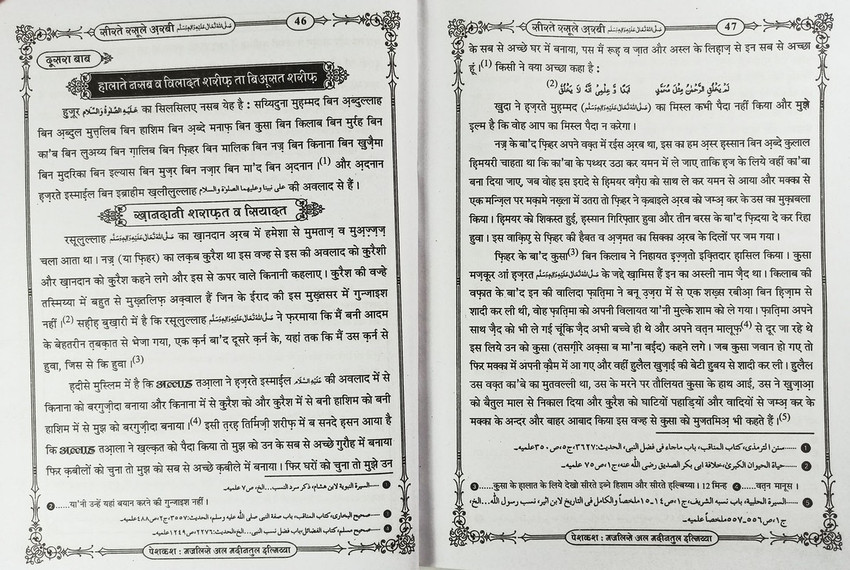 सीरते रसूले अ़रबी صَلَّى اللهُ تَعَالَى عَلَيْهِ وَاٰلِهٖ وَسَلَّم
46
दूसरा बाब
हालाते नसब व विलादत शरीफ़ ता बिअ़सत शरीफ़
हुज़ूर عَلَيْهِ الصَّلٰوةُ وَالسَّلَام का सिलसिलए नसब येह है : सय्यिदुना मुहम्मद बिन अ़ब्दुल्लाह
बिन अ़ब्दुल मुत़्त़लिब बिन हाशिम बिन अ़ब्दे मनाफ़ बिन क़ुसा बिन किलाब बिन मुर्रह बिन
का'ब बिन लुअय्य बिन ग़ालिब बिन फ़िहर बिन मालिक बिन नज़्र बिन किनाना बिन ख़ुज़ैमा
बिन मुदरिका बिन इल्यास बिन मुज़र बिन नज़ार बिन मा'द बिन अ़दनान ।(1) और अ़दनान
हज़रते इस्माईल बिन इब्राहीम ख़लीलुल्लाह على نبينا وعليهما الصلوة والسلام की अवलाद से हैं ।
ख़ानदानी शराफ़त व सियादत
रसूलुल्लाह صَلَّى اللهُ تَعَالَى عَلَيْهِ وَاٰلِهٖ وَسَلَّم का ख़ानदान अ़रब में हमेशा से मुमताज़ व मुअ़ज़्ज़ज़
चला आता था । नज़्र (या फ़िहर) का लक़ब क़ुरैश था इस वज्ह से इस की अवलाद को क़ुरैशी
और ख़ानदान को क़ुरैश कहने लगे और इस से ऊपर वाले किनानी कहलाए । क़ुरैश की वज्हे
तस्मिय्या में बहुत से मुख़्तलिफ़ अक़्वाल हैं जिन के ईराद की इस मुख़्तसर में गुन्जाइश
नहीं ।(2) सह़ीह़ बुख़ारी में है कि रसूलुल्लाह صَلَّى اللهُ تَعَالَى عَلَيْهِ وَاٰلِهٖ وَسَلَّم ने फ़रमाया कि मैं बनी आदम
के बेहतरीन त़बक़ात से भेजा गया, एक क़र्न बा'द दूसरे क़र्न के, यहां तक कि मैं उस क़र्न से
हुवा, जिस से कि हुवा ।(3)
हदीसे मुस्लिम में है कि عَزَّوَجَلَّ तआ़ला ने हज़रते इस्माईल عَلَيْهِ السَّلَام की अवलाद में से
किनाना को बरगुज़ीदा बनाया और किनाना में से क़ुरैश को और क़ुरैश में से बनी हाशिम को बनी
हाशिम में से मुझ को बरगुज़ीदा बनाया ।(4) इसी त़रह़ तिर्मिज़ी शरीफ़ में ब सनदे ह़सन आया है
कि عَزَّوَجَلَّ तआ़ला ने ख़ल्क़त को पैदा किया तो मुझ को उन के सब से अच्छे गुरौह में बनाया
फिर क़बीलों को चुना तो मुझ को सब से अच्छे क़बीले में बनाया । फिर घरों को चुना तो मुझे उन
1 ......السيرة النبوية لابن هشام، ذكر سرد النسب...الخ، ص٧ علميه۔
2 ......या'नी उन्हें यहां बयान करने की गुन्जाइश नहीं ।
3 ......صحيح البخارى، كتاب المناقب، باب صفة النبى صلى الله عليه وسلم، الحديث:٣٥٥٧، ج٢، ص٤٨٨ علميه۔
4 ......صحيح مسلم، كتاب الفضائل، باب فضل نسب النبى...الخ، الحديث:٢٢٧٦، ص١٢٤٩ علميه۔
पेशकश : मजलिसे अल मदीनतुल इल्मिय्या
सीरते रसूले अ़रबी صَلَّى اللهُ تَعَالَى عَلَيْهِ وَاٰلِهٖ وَسَلَّم
47
के सब से अच्छे घर में बनाया, पस मैं रूह़ व ज़ात और अस्ल के लिह़ाज़ से इन सब से अच्छा
हूं ।(1) किसी ने क्या अच्छा कहा है :
لَمْ يَخْلُقِ الرَّحْمٰنُ مِثْلَ مُحَمَّدٍ اَبَدًا وَّ عِلْمِىْ اَنَّهٗ لَا يَخْلُقُ (2)
ख़ुदा ने ह़ज़रते मुह़म्मद (صَلَّى اللهُ تَعَالَى عَلَيْهِ وَاٰلِهٖ وَسَلَّم) का मिस्ल कभी पैदा नहीं किया और मुझे
इ़ल्म है कि वोह आप का मिस्ल पैदा न करेगा ।
नज़्र के बा'द फ़िहर अपने वक़्त में रईस अ़रब था, इस का हम अ़स्र हस्सान बिन अ़ब्दे कुलाल
हिमयरी चाहता था कि का'बा के पथ्थर उठा कर यमन में ले जाए ताकि ह़ज के लिये वहीं का'बा
बना दिया जाए, जब वोह इस इरादे से हिमयर वग़ैरा को साथ ले कर यमन से आया और मक्का से
एक मन्ज़िल पर मक़ामे नख़्ला में उतरा तो फ़िहर ने क़बाइले अ़रब को जम्अ़ कर के उस का मुक़ाबला
किया । हिमयर को शिकस्त हुई, हस्सान गिरिफ़्तार हुवा और तीन बरस के बा'द फ़िदया दे कर रिहा
हुवा । इस वाक़िए़ से फ़िहर की हैबत व अ़ज़मत का सिक्का अ़रब के दिलों पर जम गया ।
फ़िहर के बा'द क़ुसा(3) बिन किलाब ने निहायत इज़्ज़तो इक़्तिदार ह़ासिल किया । क़ुसा
मज़कूर आं ह़ज़रत صَلَّى اللهُ تَعَالَى عَلَيْهِ وَاٰلِهٖ وَسَلَّم के जद्दे ख़ामिस हैं इन का अस्ली नाम ज़ैद था । किलाब की
वफ़ात के बा'द इन की वालिदा फ़ात़िमा ने बनू उ़ज़रा में से एक शख़्स रबीआ़ बिन हिज़ाम से
शादी कर ली थी, वोह फ़ात़िमा को अपनी विलायत या'नी मुल्के शाम को ले गया । फ़ात़िमा अपने
साथ ज़ैद को भी ले गई चूंकि ज़ैद अभी बच्चे ही थे और अपने वत़न मालूफ़(4) से दूर जा रहे थे
इस लिये उन को क़ुसा (तसग़ीरे अक़्सा ब मा'ना बई़द) कहने लगे । जब क़ुसा जवान हो गए तो
फिर मक्का में अपनी क़ौम में आ गए और वहीं हुलैल ख़ुज़ाई़ की बेटी हुबय से शादी कर ली । हुलैल
उस वक़्त का'बे का मुतवल्ली था, उस के मरने पर तौलियत क़ुसा के हाथ आई, उस ने ख़ुज़ाआ़
को बैतुल माल से निकाल दिया और क़ुरैश को घाटियों पहाड़ियों और वादियों से जम्अ़ कर के
मक्का के अन्दर और बाहर आबाद किया इस वज्ह से क़ुसा को मुजतमिअ़ भी कहते हैं ।(5)
1 ......سنن الترمذى، كتاب المناقب، باب ماجاء فى فضل النبى، الحديث:٣٦٢٧، ج٥، ص٣٥٠ علميه۔
2 ......حياة الحيوان الكبرى، خلافة ابى بكر الصديق رضى الله عنه، ج١، ص٧٥ علميه۔
3 ......क़ुसा के ह़ालात के लिये देखो सीरते इब्ने हिशाम और सीरते ह़लबिय्या । 12 मिन्ह 4 ......वत़न मानूस ।
5 ......السيرة الحلبية، باب نسبه الشريف، ج١، ص١٤-١٥ ملخصاً والكامل فى التاريخ لابن اثير، نسب رسول الله...الخ،
ج١، ص٥٥٦-٥٥٧ ملخصاً علميه۔
पेशकश : मजलिसे अल मदीनतुल इल्मिय्या